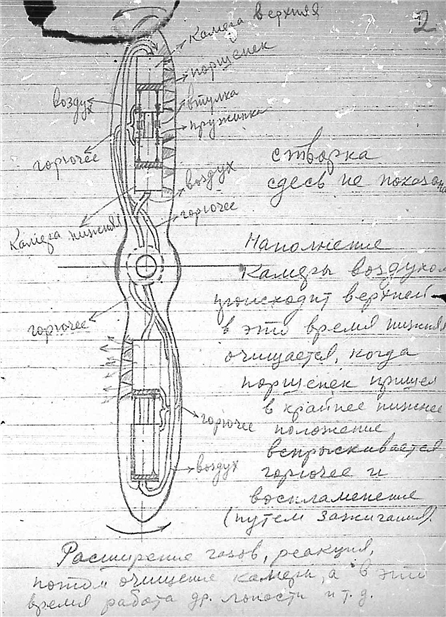 2
Камера верхняя
поршенек
воздух
втулка
пружинка
горючее
створка
сдесь не показана
воздух
горючее
Камера нижняя
Наполнение
Камеры воздухом
происходит верхней
в это время нижняя
очищается, когда
поршенек пришел
в крайнее нижнее
положение
впрыскивается
горючее и
воспламенение
(путем зажигания).
горючее
горючее
воздух
Расширение газов, реакция,
потом очищение камеры, а в это
время работа др. лопасти и т.д.